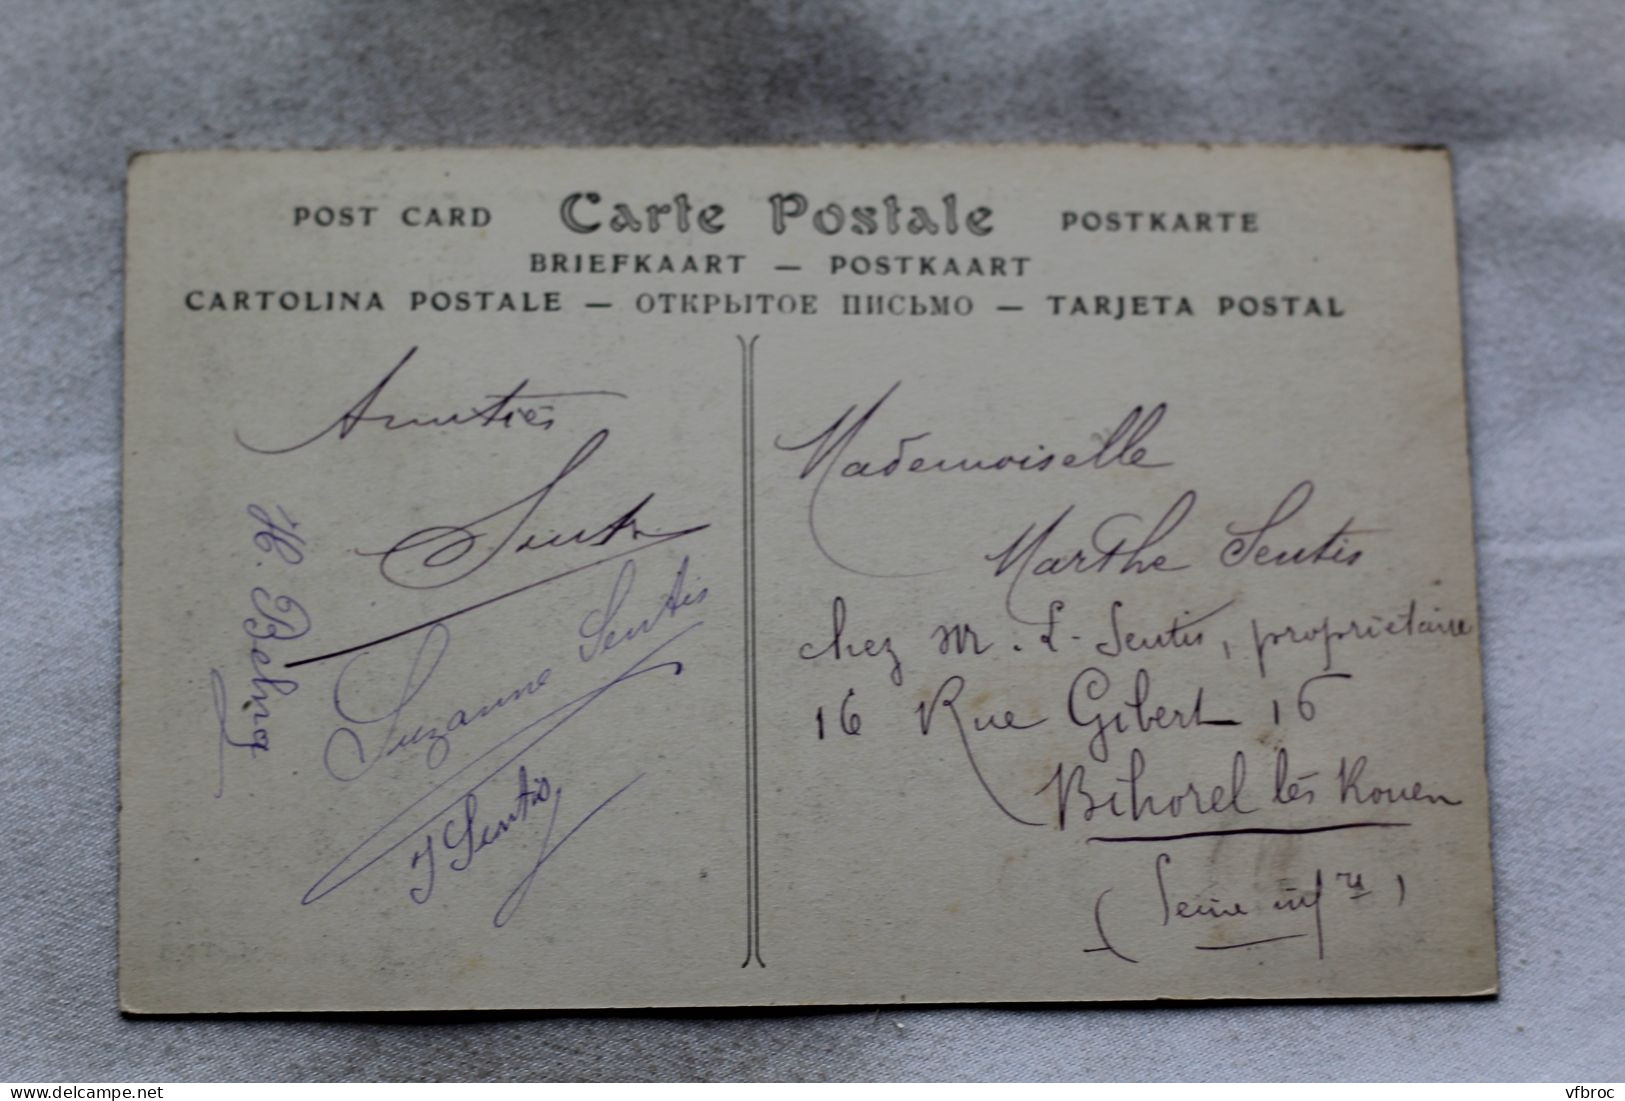 POST CARD Carte Postale POSTKARTE
BRIEFKAART — POSTKAART
CARTOLINA POSTALE — ОТКРЫТОЕ ПИСЬМО — TARJETA POSTAL
Amitiés
Sentis
H. Belng
Suzanne Sentis
J Sentis
Mademoiselle
Marthe Sentis
chez Mr. L. Sentis, propriétaire
16 Rue Gibert 16
Bihorel lès Rouen
(Seine infre)
delcampe.net
vfbroc